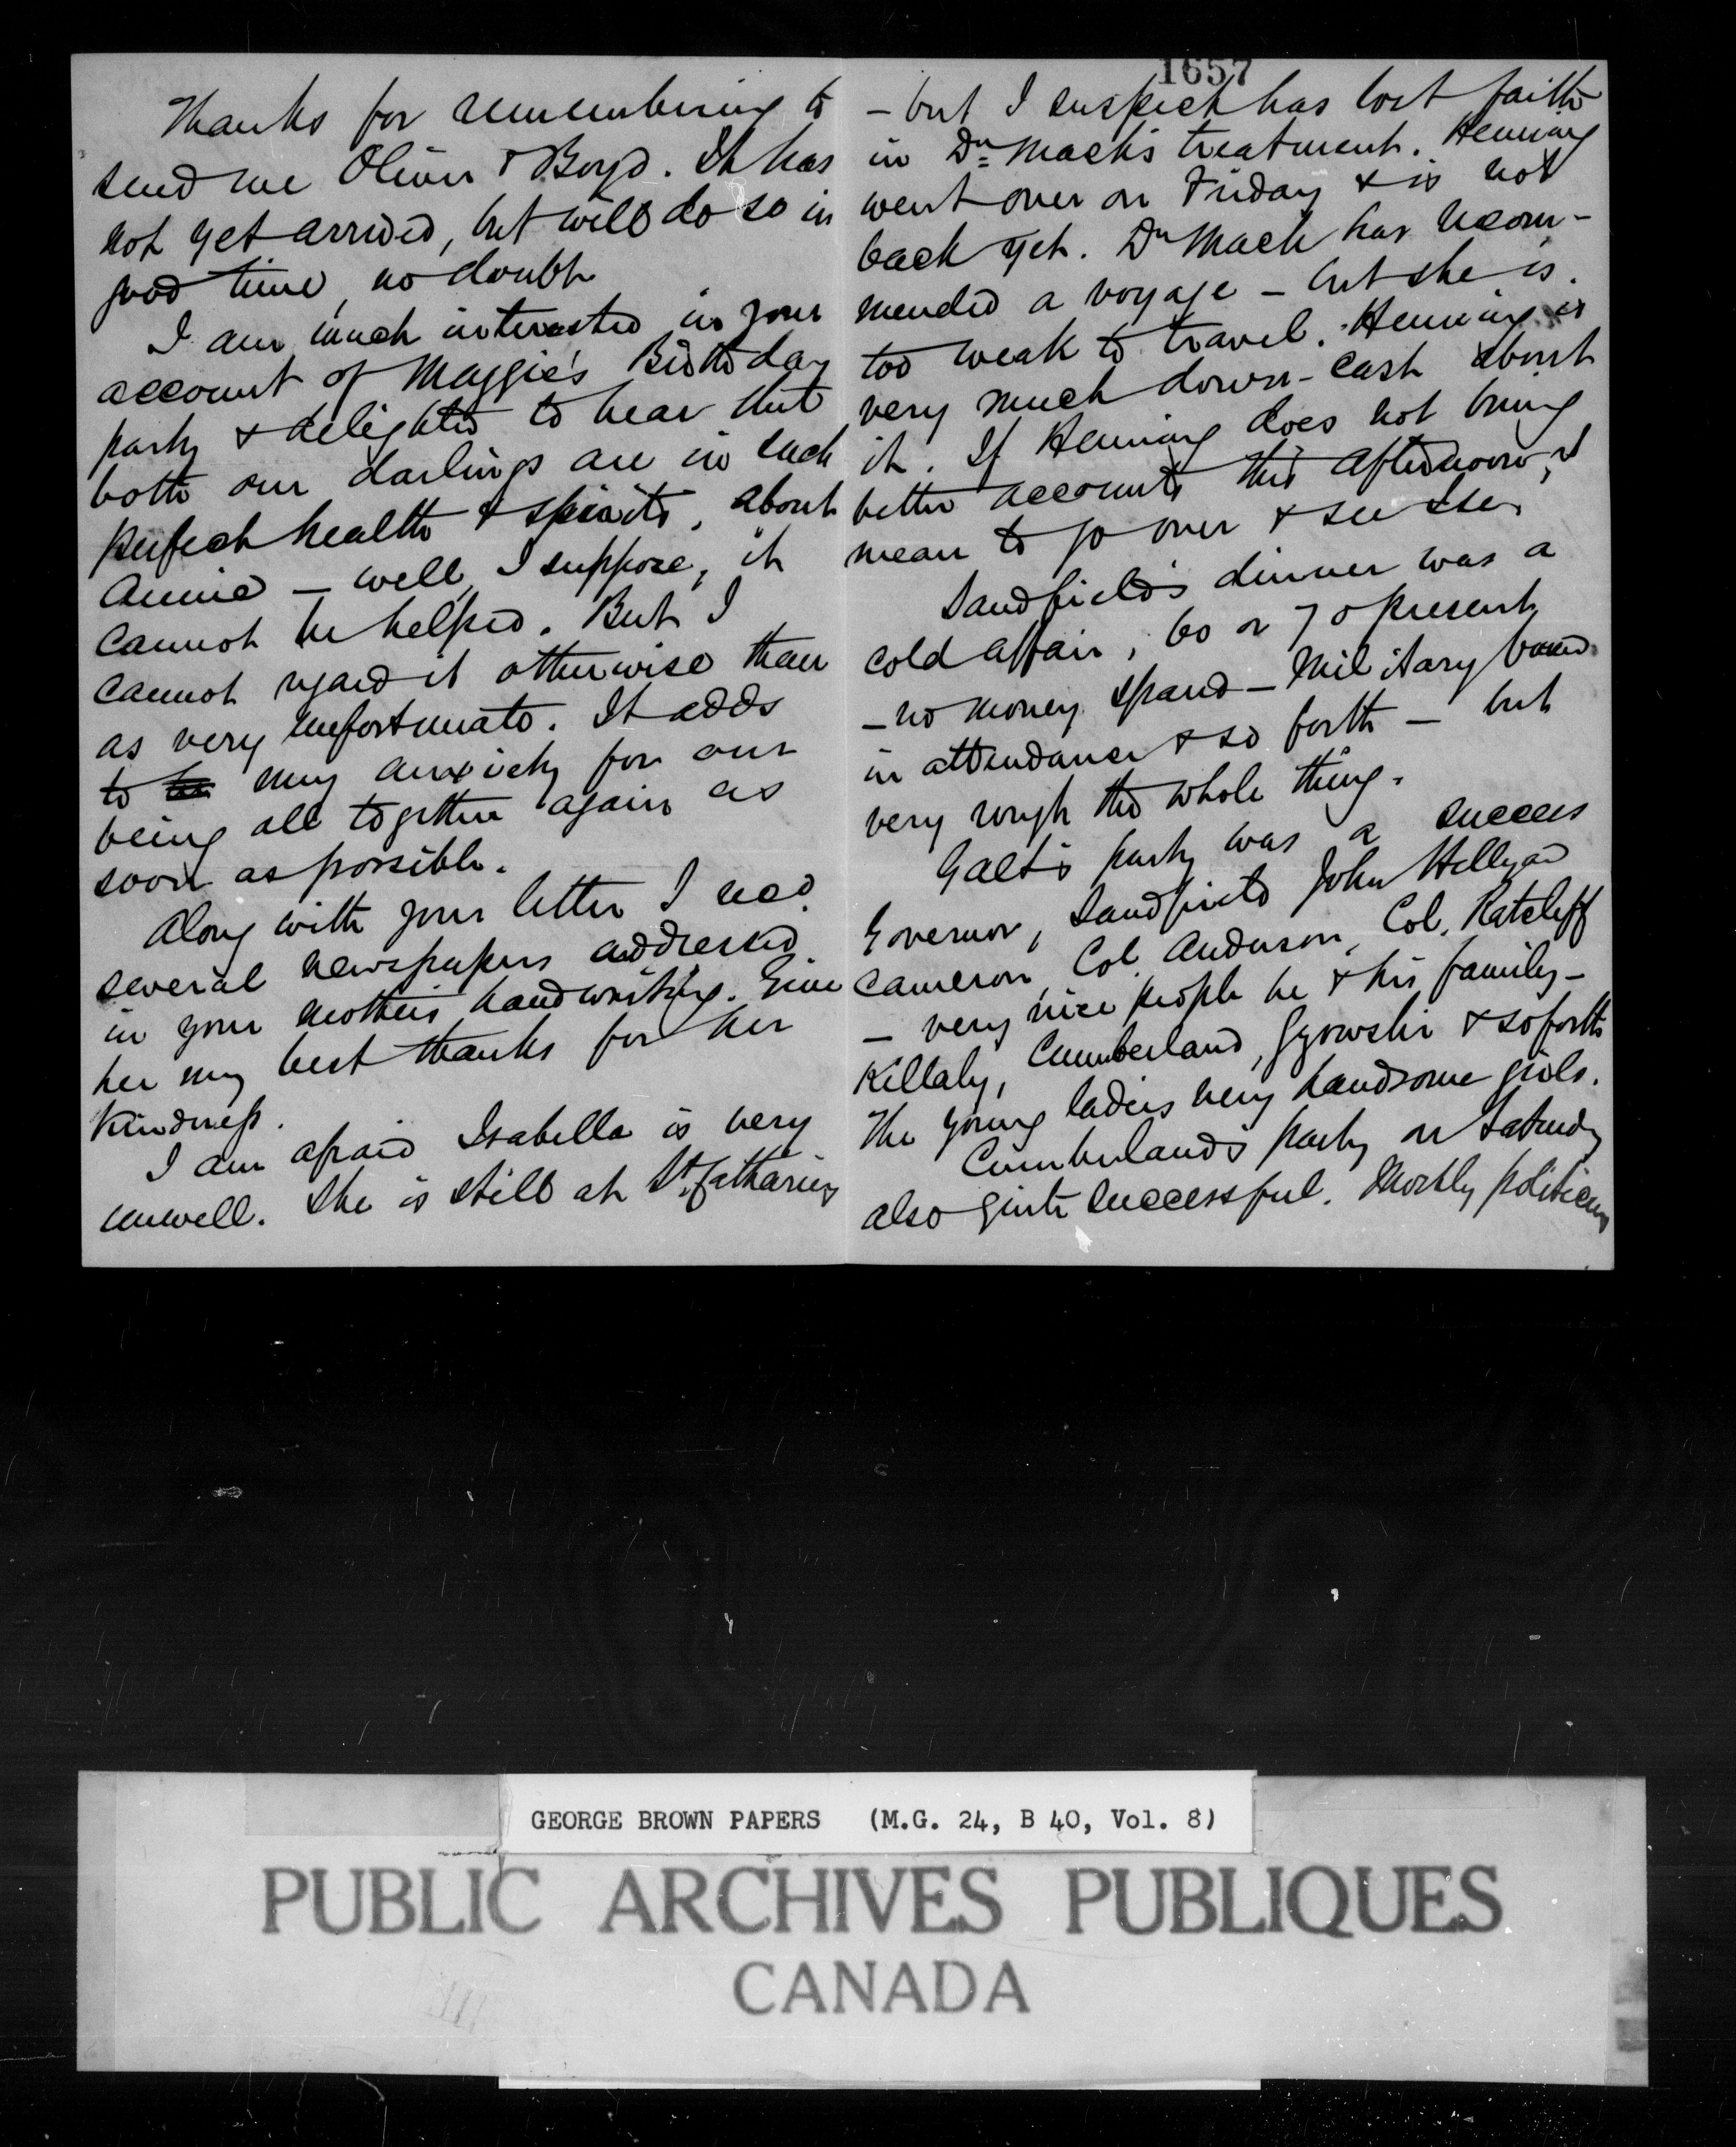 Thanks for remembering to
send me Oliver & Boyd. It has
not yet arrived, but will do so in
good time, no doubt
I am much interested in your
account of Maggie's Birthday
party & delighted to hear that
both our darlings are in such
perfect health & spirits. about
Annie – well, I suppose, it
cannot be helped. But I
cannot regard it otherwise than
as very unfortunate. It adds
to my anxiety for our
being all together again as
soon as possible.
Along with your letter I recd.
several newspapers addressed
in your mother's handwriting. Give
her my best thanks for her
kindness.
I am afraid Isabella is very
unwell. She is still at St. Catharines
1657
– but I suspect has lost faith
in Dr. Mack's treatment. Henning
went over on Friday & is not
back yet. Dr Mack has recom-
mended a voyage – but she is
too weak to travel. Henning is
very much down-cast about
it. If Henning does not bring
better accounts this afternoon, I
mean to go over & see her.
Sandfield's dinner was a
cold affair, 60 or 70 present,
– no money spared – Military band
in attendance & so forth – but
very rough the whole thing.
Galt's party was a success
Governor, Sandfield John Hillyard
Cameron, Col. Anderson, Col. Ratcliff
– very nice people he & his family –
Killaly, Cumberland, Gzowski & so forth
The young ladies very handsome girls.
Cumberland's party on Saturday
also quite successful. Mostly politicians
GEORGE BROWN PAPERS (M.G. 24, B 40, Vol. 8)
PUBLIC ARCHIVES PUBLIQUES
CANADA